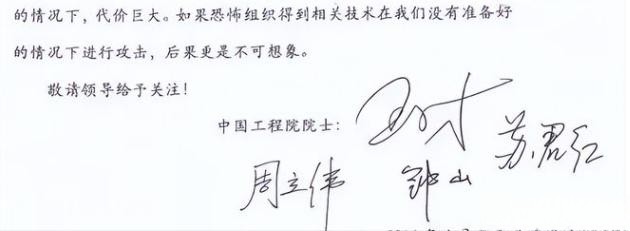 的情况下，代价巨大。如果恐怖组织得到相关技术在我们没有准备好
的情况下进行攻击，后果更是不可想象。
敬请领导给予关注！
中国工程院院士：
苏君红
周立伟 钟山